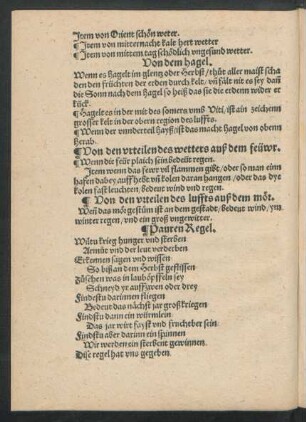 Item von Orient schön weter.
¶ Item von mitternacht kalt hert wetter
¶ Item von mittem tag schödlich vngesund wetter.
Von dem hagel.
Wenn es hagelt im glentz oder Herbst / thůt aller maist scha
den den früchten der erden durch kelt / vñ falt mit es sey dañ
die Sonn nach dem hagel so heiß das sie die erdenn wider er
kück.
¶ Hagelt es in der mit des somers vmb Viti, ist ain zeichenn
grosser kelt in der obern region des luffts.
¶ Wenn der vnderteil hayß / ist das macht hagel von obenn
herab.
¶ Von den vrteilen des wetters auß dem feüwr.
¶ Wenn die feür plaich sein bedeüt regen.
Item wenn das fewr vil flammen gibt / oder so man einn
hafen dabey auffhebt vñ kolen daran hangen / oder das dye
kolen fast leuchten / bedeut wind vnd regen.
¶ Von den vrteilen des luffts auß dem mör.
Wen das mörgestüm ist an dem gestadt / bedeut wind / ym
winter regen / vnd ein groß vngewitter.
¶ Pauren Regel.
Wiltu krieg hunger vnd sterben
Armůt vnd der leut verderben
Erkennen sagen vnd wissen
So biß an dem Herbst geflissen
Züschen was in laub öpffeln sey
Schneyd yr auff zwen oder drey
Findestu darinnen fliegen
Bedeut das nächst jar groß kriegen
Findstu dann ein würmlein
Das jar wirt fayst vnd fruchtber sein
Findstu aber darinn ein spinnen
Wir werden ein sterbent gewinnen.
Dise regel hat vns gegeben